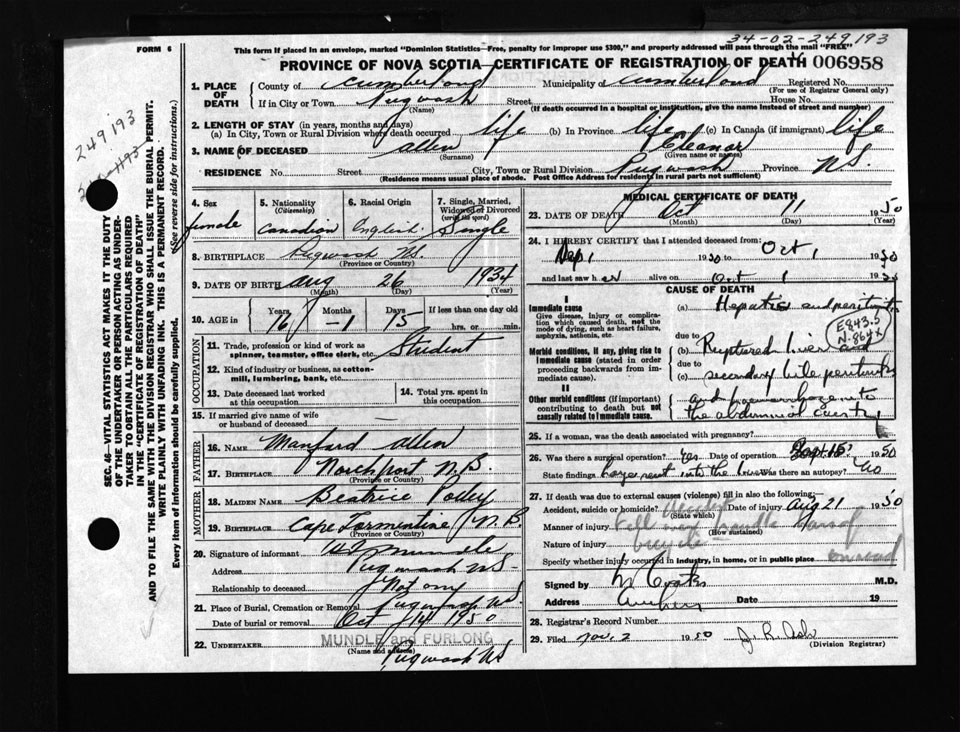 34-02-249193
FORM 6
This form if placed in an envelope, marked "Dominion Statistics—Free, penalty for improper use $300," and properly addressed will pass through the mail "FREE"
PROVINCE OF NOVA SCOTIA—CERTIFICATE OF REGISTRATION OF DEATH 006958
1. PLACE OF DEATH
County of Cumberland Municipality of Cumberland Registered No.
(For use of Registrar General only)
If in City or Town Pugwash Street House No.
(Name) (If death occurred in a hospital or institution, give the name instead of street and number)
2. LENGTH OF STAY (in years, months and days)
(a) In City, Town or Rural Division where death occurred life (b) In Province life (c) In Canada (if immigrant) life
3. NAME OF DECEASED Allen Eleanor
(Surname) (Given name or names)
RESIDENCE No. Street City, Town or Rural Division Pugwash Province N.S.
(Residence means usual place of abode. Post Office Address for residents in rural parts not sufficient)
249193
SEC. 46—VITAL STATISTICS ACT MAKES IT THE DUTY
OF THE UNDERTAKER OR PERSON ACTING AS UNDER-
TAKER TO OBTAIN ALL THE PARTICULARS REQUIRED
IN THE "CERTIFICATE OF REGISTRATION OF DEATH"
AND TO FILE THE SAME WITH THE DIVISION REGISTRAR WHO SHALL ISSUE THE BURIAL PERMIT.
WRITE PLAINLY WITH UNFADING INK. THIS IS A PERMANENT RECORD.
Every item of information should be carefully supplied. (See reverse side for instructions.)
4. Sex
female
5. Nationality
(Citizenship)
Canadian
6. Racial Origin
English
7. Single, Married, Widowed or Divorced
(write the word)
Single
8. BIRTHPLACE Pugwash N.S.
(Province or Country)
9. DATE OF BIRTH Aug 26 1934
(Month) (Day) (Year)
10. AGE in
Years 16 Months 1 Days 15 If less than one day old
hrs. or min.
OCCUPATION
11. Trade, profession or kind of work as
spinner, teamster, office clerk, etc. Student
12. Kind of industry or business, as cotton-
mill, lumbering, bank, etc.
13. Date deceased last worked
at this occupation
14. Total yrs. spent in
this occupation
15. If married give name of wife
or husband of deceased —
FATHER
16. NAME Manford Allen
17. BIRTHPLACE Northport N.B.
(Province or Country)
MOTHER
18. MAIDEN NAME Beatrice Polley
19. BIRTHPLACE Cape Tormentine N.B.
(Province or Country)
20. Signature of informant Mundle
Address Pugwash N.S.
Relationship to deceased Not any
21. Place of Burial, Cremation or Removal Pugwash N.S.
Date of burial or removal Oct 14 1950
22. UNDERTAKER MUNDLE and FURLONG
(Name and address) Pugwash N.S.
MEDICAL CERTIFICATE OF DEATH
23. DATE OF DEATH Oct 11 1950
(Month) (Day) (Year)
24. I HEREBY CERTIFY that I attended deceased from:
Sep 1 1950 to Oct 1 1950
and last saw her alive on Oct 1 1950
CAUSE OF DEATH
I
Immediate cause
Give disease, injury or complica-
tion which caused death, not the
mode of dying, such as heart failure,
asphyxia, asthenia, etc.
(a) peritonitis
E843.5
N-864X
Morbid conditions, if any, giving rise to
immediate cause (stated in order
proceeding backwards from im-
mediate cause).
due to
(b) Ruptured liver and
due to
(c) secondary bile peritonitis
II
Other morbid conditions (if important)
contributing to death but not
causally related to immediate cause.
and haemorrhage into
the abdominal cavity
25. If a woman, was the death associated with pregnancy?
26. Was there a surgical operation? Yes Date of operation Sept 15 1950
State findings large rent into the liver Was there an autopsy? No
27. If death was due to external causes (violence) fill in also the following:
Accident, suicide or homicide? Accident Date of injury Aug 21 1950
(State which)
Manner of injury Fell over handle bars of
(How sustained)
Nature of injury bicycle
Specify whether injury occurred in industry, in home, or in public place on road
Signed by M.D.
Address Amherst Date 19
28. Registrar's Record Number
29. Filed Nov. 2 1950
(Division Registrar)